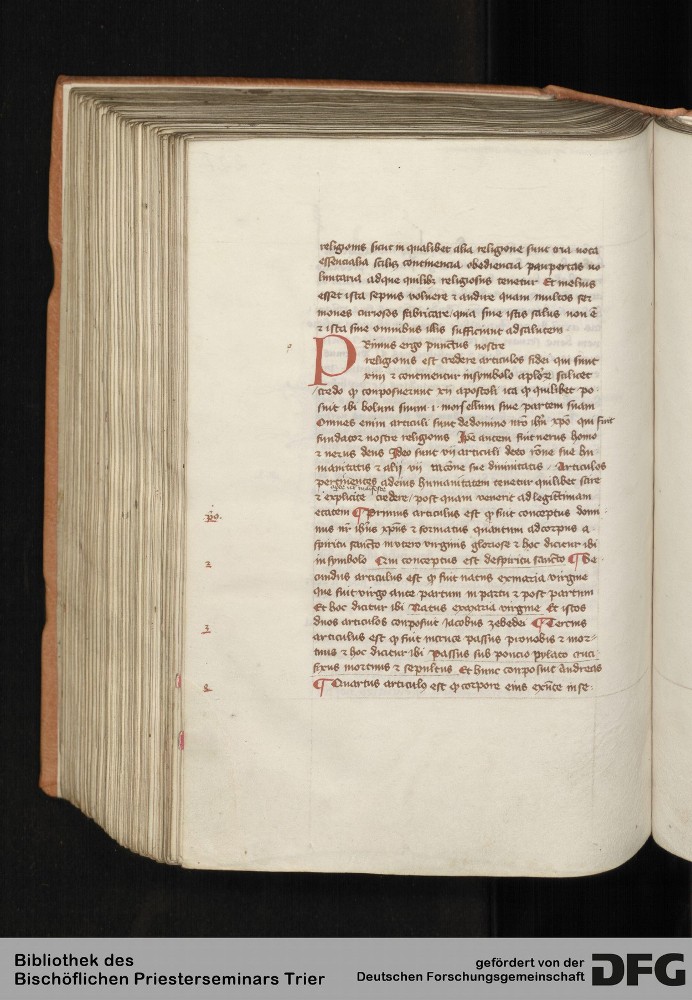 religionis sicut in qualibet alia religione sunt tria uota
essencialia scilicʒ continencia obediencia paupertas uo
luntaria adque quilibʒ religiosus tenetur Et melius
esset ista sepius voluere ⁊ audire quam multos ser
mones curiosos fabricare quia sine istis salus non ē
⁊ ista sine omnibus illis sufficiunt ad salutem
PRimus ergo punctus nostre
religionis est credere articulos fidei qui sunt
xiiii ⁊ continentur in symbolo aplōꝝ scilicet
credo qͥ composuerunt xii apostoli ita qͥ quilibet po
suit ibi bolum suum .i. morsellum siue partem suam
Omnes enim articuli sunt de domino nr̄o ihū xpō qui fuit
fundator nostre religionis Ipe autem fuit uerus homo
⁊ uerus deus Ideo sunt vii articuli deco rōne sue hu
manitatis ⁊ alij vii racōne sue diuinitatis Articulos
pertinentes ad eius humanitatem tenetur quilibet scire
⁊ explicite credere post quam venerit ad legittimam
etatem ¶ Primus articulus est qͥ fuit conceptus domi
nus nr̄ ihūs xpūs ⁊ formatus quantum ad corpus a
spiritu sancto in vtero virginis gloriose ⁊ hoc dicitur ibi
in symbolo Qui conceptus est de spiritu sancto ¶ Se
cundus articulus est qͥ fuit natus ex maria virgine
que fuit virgo ante partum in partu ⁊ post partum
Et hoc dicitur ibi Natus ex maria virgine Et istos
duos articulos composuit Jacobus zebedei ¶ Tercius
articulus est qͥ fuit in cruce passus pro nobis ⁊ mor
tuus ⁊ hoc dicitur ibi Passus sub poncio pylato cruci
fixus mortuus ⁊ sepultus Et hunc composuit Andreas
¶ Quartus articulꝰ est qͥ corpore eius exn̄te in se
2
3
Bibliothek des
Bischöflichen Priesterseminars Trier
gefördert von der
Deutschen Forschungsgemeinschaft
DFG